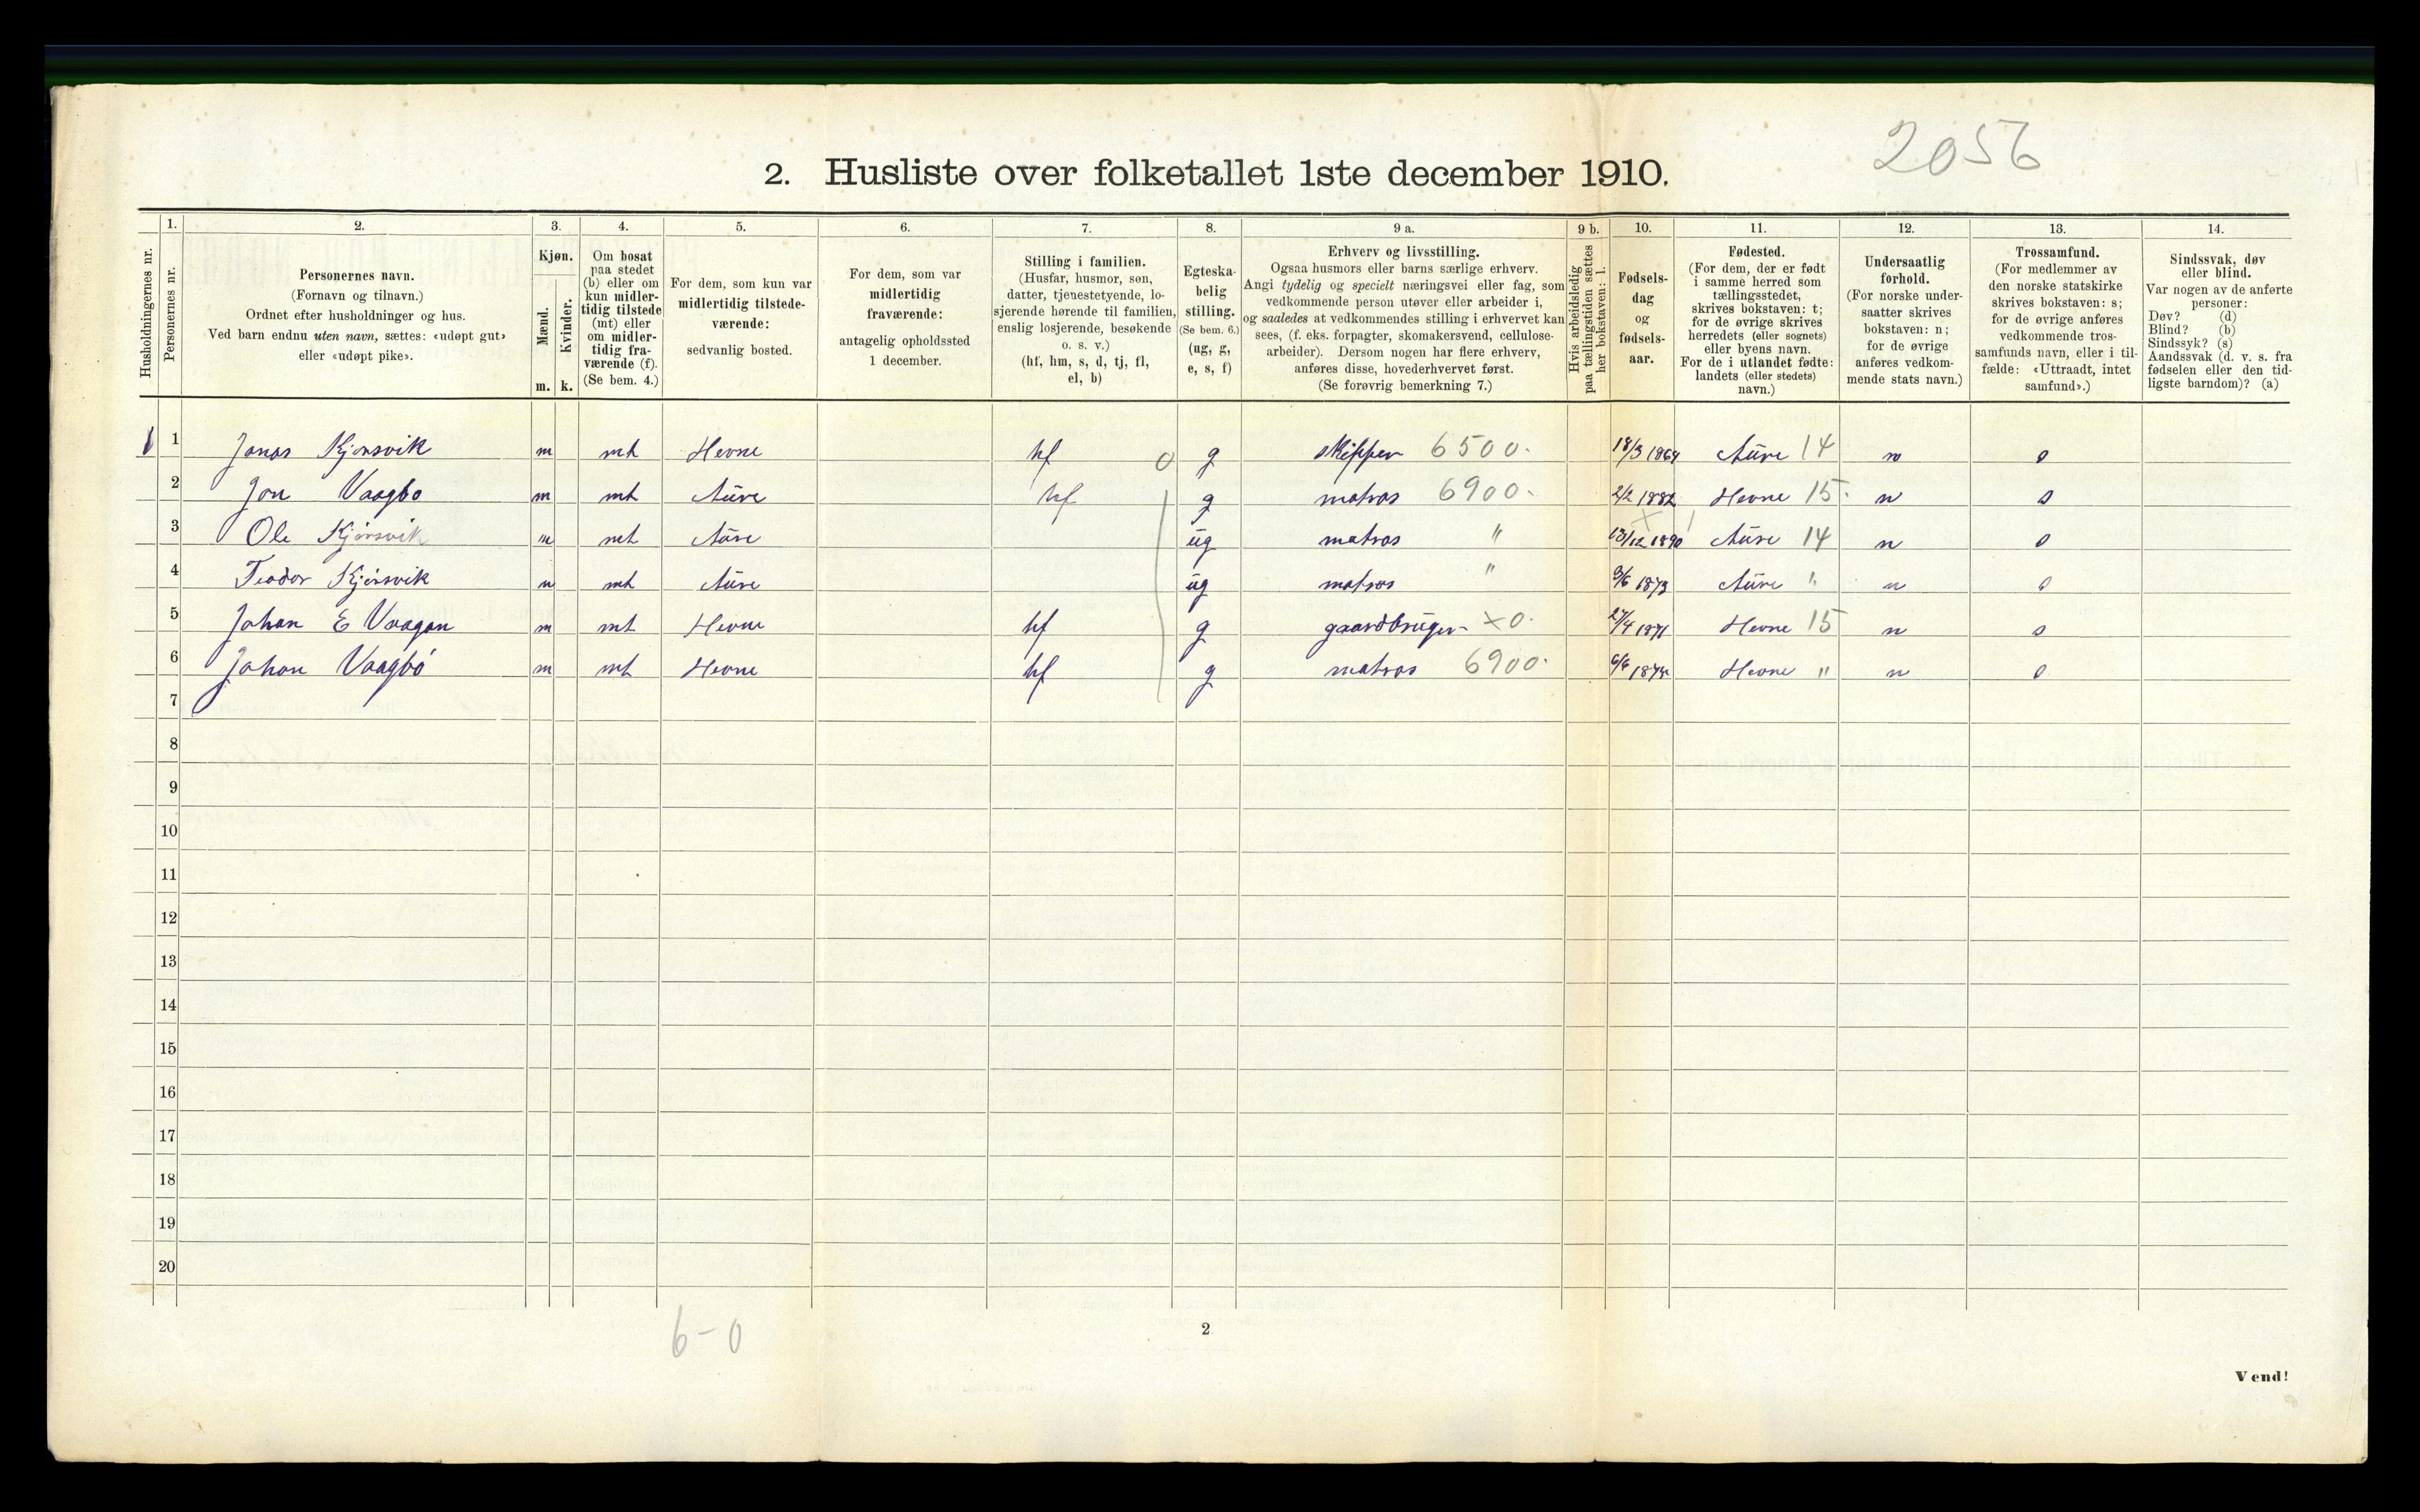 2056
2. Husliste over folketallet 1ste december 1910.
Husholdningernes nr.
1. Personernes nr.
2. Personernes navn.
(Fornavn og tilnavn.)
Ordnet efter husholdninger og hus.
Ved barn endnu uten navn, sættes: «udøpt gut»
eller «udøpt pike».
3. Kjøn.
Mænd. m.
Kvinder. k.
4. Om bosat
paa stedet
(b) eller om
kun midler-
tidig tilstede
(mt) eller
om midler-
tidig fra-
værende (f).
(Se bem. 4.)
5. For dem, som kun var
midlertidig tilstede-
værende:
sedvanlig bosted.
6. For dem, som var
midlertidig
fraværende:
antagelig opholdssted
1 december.
7. Stilling i familien.
(Husfar, husmor, søn,
datter, tjenestetyende, lo-
sjerende hørende til familien,
enslig losjerende, besøkende
o. s. v.)
(hf, hm, s, d, tj, fl,
el, b)
8. Egteska-
belig
stilling.
(Se bem. 6.)
(ug, g,
e, s, f)
9 a. Erhverv og livsstilling.
Ogsaa husmors eller barns særlige erhverv.
Angi tydelig og specielt næringsvei eller fag, som
vedkommende person utøver eller arbeider i,
og saaledes at vedkommendes stilling i erhvervet kan
sees, (f. eks. forpagter, skomakersvend, cellulose-
arbeider). Dersom nogen har flere erhverv,
anføres disse, hovederhvervet først.
(Se forøvrig bemerkning 7.)
9 b. Hvis arbeidsledig
paa tællingstiden sættes
her bokstaven: l.
10. Fødsels-
dag
og
fødsels-
aar.
11. Fødested.
(For dem, der er født
i samme herred som
tællingsstedet,
skrives bokstaven: t;
for de øvrige skrives
herredets (eller sognets)
eller byens navn.
For de i utlandet fødte:
landets (eller stedets)
navn.)
12. Undersaatlig
forhold.
(For norske under-
saatter skrives
bokstaven: n;
for de øvrige
anføres vedkom-
mende stats navn.)
13. Trossamfund.
(For medlemmer av
den norske statskirke
skrives bokstaven: s;
for de øvrige anføres
vedkommende tros-
samfunds navn, eller i til-
fælde: «Uttraadt, intet
samfund».)
14. Sindssvak, døv
eller blind.
Var nogen av de anførte
personer:
Døv? (d)
Blind? (b)
Sindssyk? (s)
Aandssvak (d. v. s. fra
fødselen eller den tid-
ligste barndom)? (a)
1 1 Jonas Kjørsvik m mt Hevne hf 0 g skipper 6500. 18/3 1864 Aure 14 n s
2 Jon Vaagbo m mt Aure hf g matros 6900. 2/2 1882 Hevne 15. n s
3 Ole Kjørsvik m mt Aure ug matros " 13/12 1890 Aure 14 n s
4 Teodor Kjørsvik m mt Aure ug matros " 9/6 1873 Aure " n s
5 Johan E Vaagan m mt Hevne hf g gaardbruger x0. 27/4 1871 Hevne 15 n s
6 Johan Vaagbø m mt Hevne hf g matros 6900. 6/6 Hevne " n s
7
8
9
10
11
12
13
14
15
16
17
18
19
20
6-0
2
Vend!